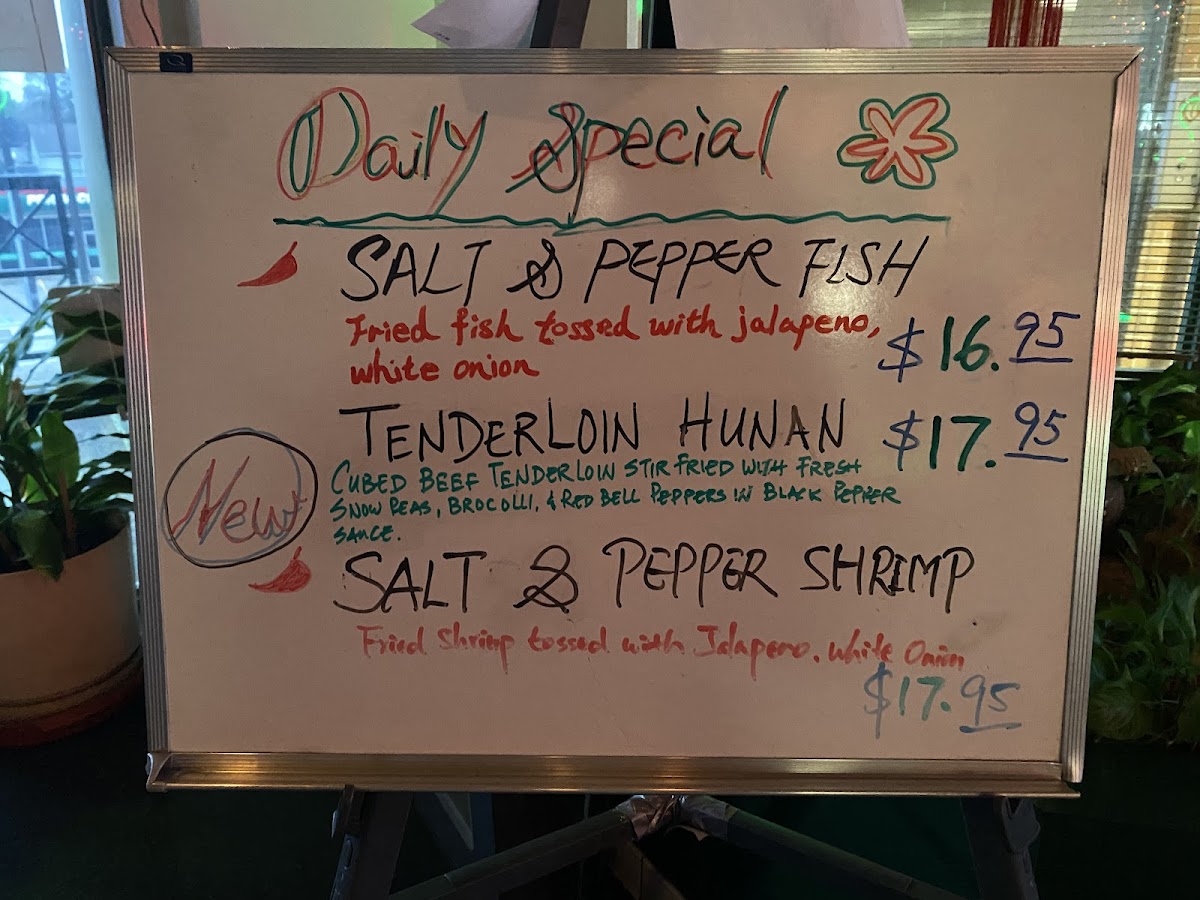 Daily Special
SALT & PEPPER FISH
Fried fish tossed with jalapeno,
white onion
$16.95
TENDERLOIN HUNAN
$17.95
CUBED BEEF TENDERLOIN STIR FRIED WITH FRESH
SNOW PEAS, BROCOLLI, & RED BELL PEPPERS IN BLACK PEPPER
SAUCE.
New
SALT & PEPPER SHRIMP
Fried Shrimp tossed with Jalapeno, white Onion
$17.95